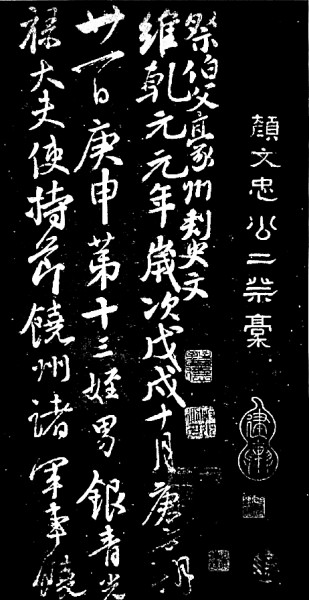 顏文忠公二祭稾
祭伯父豪州刺史文
維乾元元年歲次戊戌十月庚寅朔
廿一日庚申第十三姪男銀青光
祿大夫使持節饒州諸軍事饒